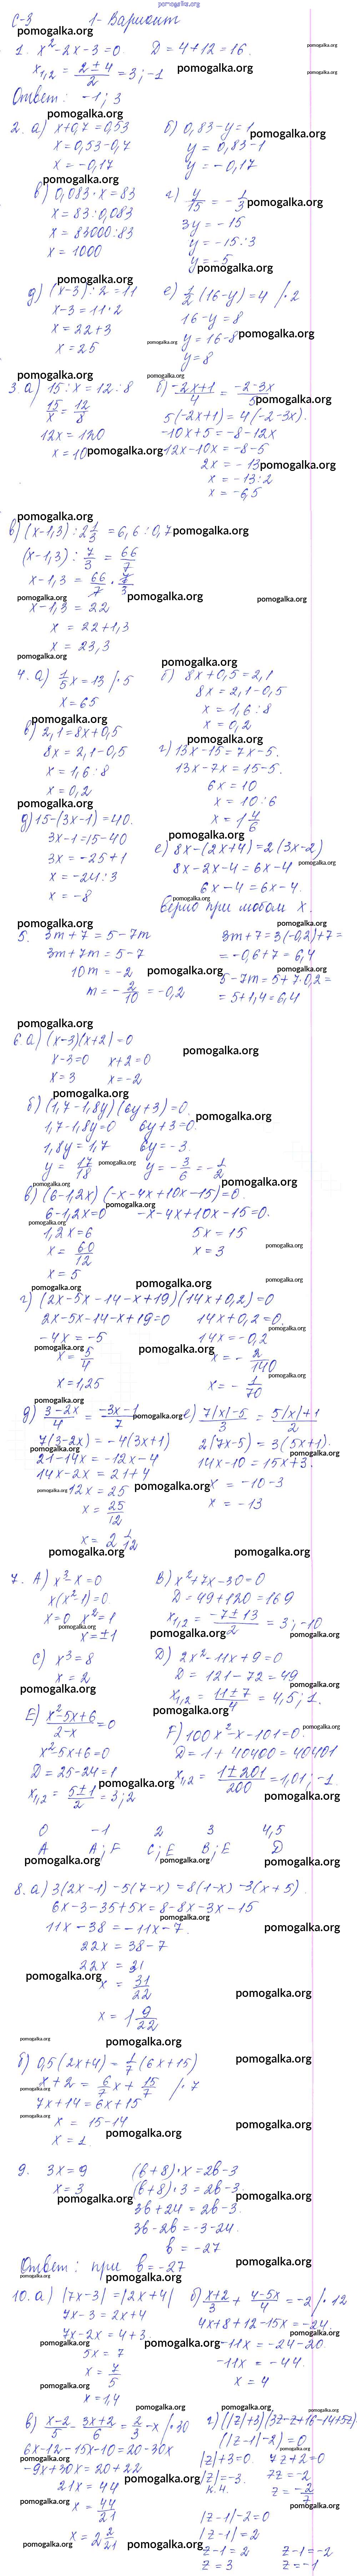 С-3 1-Вариант
1. x² - 2x - 3 = 0 D = 4 + 12 = 16.
x₁,₂ = (2 ± 4)/2 = 3; -1
Ответ: -1; 3
2. а) x + 0,7 = 0,53 б) 0,83 - y = 1
x = 0,53 - 0,7 y = 0,83 - 1
x = -0,17 y = -0,17
в) 0,083 · x = 83 г) y/15 = -1/3
x = 83 : 0,083 3y = -15
x = 83000 : 83 y = -15 : 3
x = 1000 y = -5
д) (x-3) : 2 = 11 е) 1/2 (16-y) = 4 /·2
x - 3 = 11·2 16 - y = 8
x = 22 + 3 y = 16 - 8
x = 25 y = 8
3. а) 15 : x = 12 : 8 б) (-2x+1)/4 = (-2-3x)/5
15/x = 12/8 5(-2x+1) = 4(-2-3x).
12x = 120 -10x + 5 = -8 - 12x
x = 10 12x - 10x = -8 - 5
2x = -13
x = -13 : 2
x = -6,5
в) (x-1,3) : 2 1/3 = 6,6 : 0,7
(x-1,3) : 7/3 = 66/7
x - 1,3 = 66/7 · 7/3
x - 1,3 = 22
x = 22 + 1,3
x = 23,3
4. а) 1/5 x = 13 /·5 б) 8x + 0,5 = 2,1
x = 65 8x = 2,1 - 0,5
x = 1,6 : 8
x = 0,2
в) 2,1 = 8x + 0,5 г) 13x - 15 = 7x - 5.
8x = 2,1 - 0,5 13x - 7x = 15 - 5.
x = 1,6 : 8 6x = 10
x = 0,2 x = 10 : 6
x = 1 4/6
д) 15 - (3x-1) = 40.
3x - 1 = 15 - 40 е) 8x - (2x+4) = 2(3x-2)
3x = -25 + 1 8x - 2x - 4 = 6x - 4
x = -24 : 3 6x - 4 = 6x - 4.
x = -8 Верно при любом x.
5. 3m + 7 = 5 - 7m 3m + 7 = 3(-0,2) + 7 =
3m + 7m = 5 - 7 = -0,6 + 7 = 6,4
10m = -2 5 - 7m = 5 + 7·0,2 =
m = -2/10 = -0,2 = 5 + 1,4 = 6,4
6. а) (x-3)(x+2) = 0
x - 3 = 0 x + 2 = 0
x = 3 x = -2
б) (1,7 - 1,8y)(6y + 3) = 0.
1,7 - 1,8y = 0 6y + 3 = 0.
1,8y = 1,7 6y = -3.
y = 17/18 y = -3/6 = -1/2
в) (6 - 1,2x)(-x - 4x + 10x - 15) = 0.
6 - 1,2x = 0 -x - 4x + 10x - 15 = 0.
1,2x = 6 5x = 15
x = 60/12 x = 3
x = 5
г) (2x - 5x - 14 - x + 19)(14x + 0,2) = 0
2x - 5x - 14 - x + 19 = 0 14x + 0,2 = 0.
-4x = -5 14x = -0,2
x = 5/4 x = -2/140
x = 1,25 x = -1/70
д) (3-2x)/4 = (-3x-1)/7 е) (7|x|-5)/3 = (5|x|+1)/2
7(3-2x) = -4(3x+1) 2(7x-5) = 3(5x+1).
21 - 14x = -12x - 4 14x - 10 = 15x + 3.
14x - 2x = 21 + 4 x = -10 - 3
12x = 25 x = -13
x = 25/12
x = 2 1/12
7. А) x³ - x = 0 В) x² + 7x - 30 = 0
x(x² - 1) = 0 D = 49 + 120 = 169
x = 0 x² = 1 x₁,₂ = (-7 ± 13)/2 = 3; -10
x = ±1
С) x³ = 8 D) 2x² - 11x + 9 = 0
x = 2 D = 121 - 72 = 49
x₁,₂ = (11 ± 7)/4 = 4,5; 1.
Е) (x² - 5x + 6)/(2-x) = 0 F) 100x² - x - 101 = 0.
x² - 5x + 6 = 0 D = 1 + 40400 = 40401
D = 25 - 24 = 1 x₁,₂ = (1 ± 201)/200 = 1,01; -1.
x₁,₂ = (5 ± 1)/2 = 3; 2
0 -1 2 3 4,5
A A; F C; E B; E D
8. а) 3(2x-1) - 5(7-x) = 8(1-x) - 3(x+5).
6x - 3 - 35 + 5x = 8 - 8x - 3x - 15
11x - 38 = -11x - 7.
22x = 38 - 7
22x = 31
x = 31/22
x = 1 9/22
б) 0,5(2x+4) = 1/7 (6x+15)
x + 2 = 6/7 x + 15/7 /·7
7x + 14 = 6x + 15
x = 15 - 14
x = 1.
9. 3x = 9 (b+8)·x = 2b - 3
x = 3 (b+8)·3 = 2b - 3
3b + 24 = 2b - 3.
3b - 2b = -3 - 24.
b = -27
Ответ: при b = -27
10. а) |7x-3| = |2x+4| б) (x+2)/3 + (4-5x)/4 = -2 /·12
7x - 3 = 2x + 4 4x + 8 + 12 - 15x = -24
7x - 2x = 4 + 3. -11x = -24 - 20
5x = 7 -11x = -44.
x = 7/5 x = 4
x = 1,4
в) (x-2)/5 - (3x+2)/6 = 2/3 - x /·30 г) (|z|+3)(3z-2+16-14+5z)·
6x - 12 - 15x - 10 = 20 - 30x (|z-1|-2) = 0
-9x + 30x = 20 + 22 |z| + 3 = 0. 7z + 2 = 0
21x = 44 |z| = -3. 7z = -2
x = 44/21 к.н. z = -2/7
x = 2 2/21 |z-1| - 2 = 0
|z-1| = 2
z - 1 = 2 z - 1 = -2
z = 3 z = -1